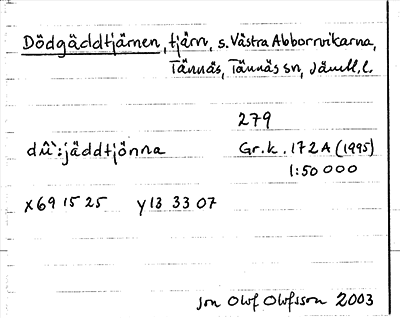 Dödgäddtjärnen, tjärn, s. Västra Abborrvikarna,
Tännäs, Tännäs sn, Jämtl. l.
279
dû`:jäddtjönna Gr.k. 172A (1995)
1:50 000
x69 15 25 y13 33 07
Jon Olof Olofsson 2003